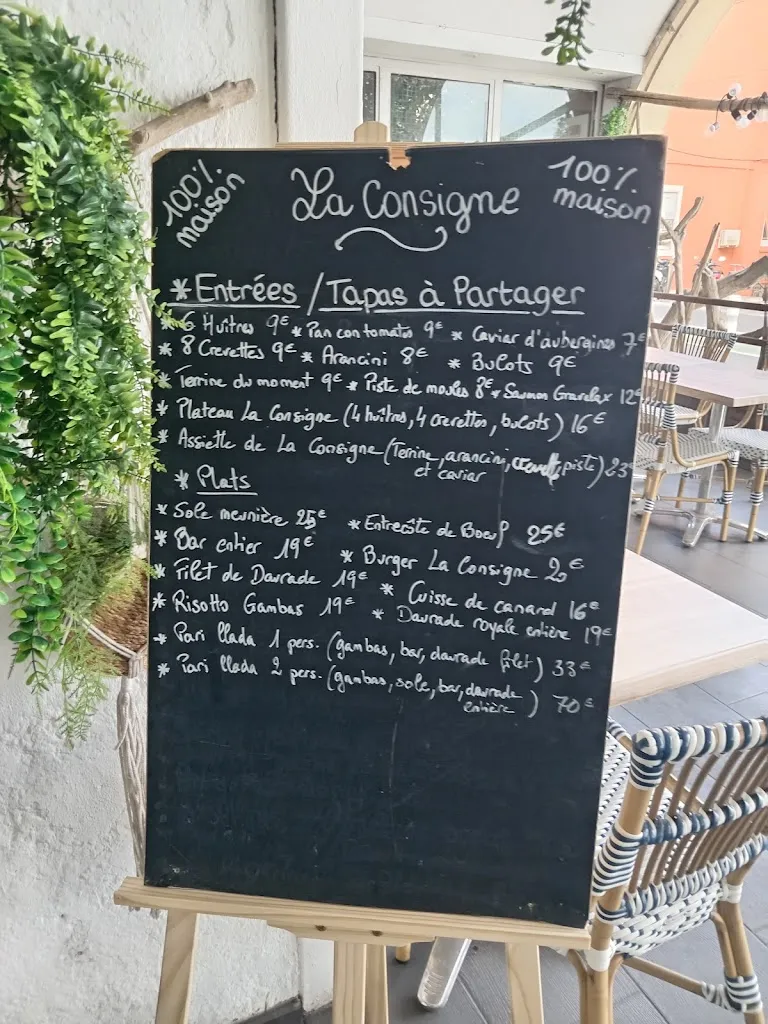 100% maison
La Consigne
100% maison
* Entrées / Tapas à Partager
* 6 Huîtres 9€ * Pan con tomates 9€ * Caviar d'aubergines 7€
* 8 Crevettes 9€ * Arancini 8€ * Bulots 9€
* Terrine du moment 9€ * Piste de moules 8€ * Saumon Gravelax 12€
* Plateau La Consigne (4 huîtres, 4 crevettes, bulots) 16€
* Assiette de La Consigne (Terrine, arancini, piste) 23€
et caviar
* Plats
* Sole meunière 25€ * Entrecôte de Boeuf 25€
* Bar entier 19€ * Burger La Consigne 20€
* Filet de Daurade 19€ * Cuisse de canard 16€
* Risotto Gambas 19€ * Daurade royale entière 19€
* Pari llada 1 pers. (gambas, bar, daurade filet) 33€
* Pari llada 2 pers. (gambas, sole, bar, daurade
entière) 70€